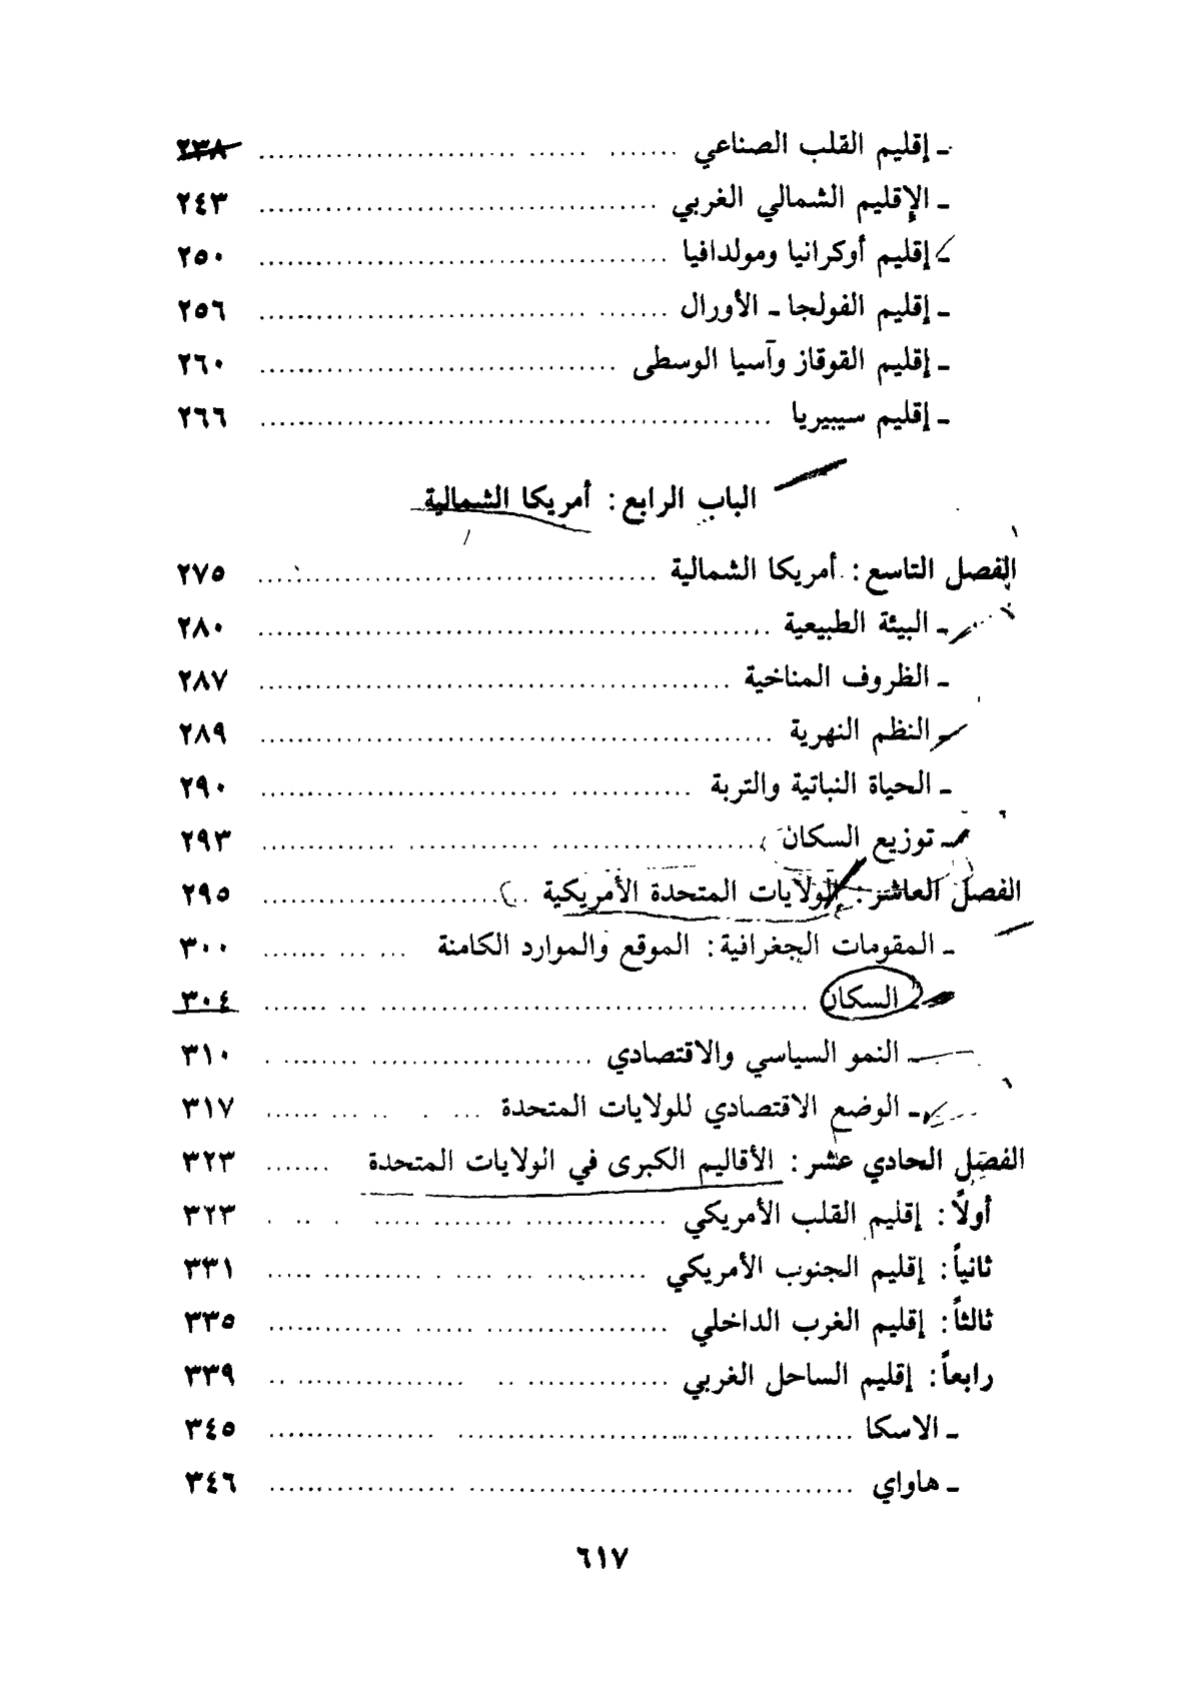 ـ إقليم القلب الصناعي ........ ٢٣٨
ـ الإقليم الشمالي الغربي ........ ٢٤٣
ـ إقليم أوكرانيا ومولدافيا ........ ٢٥٠
ـ إقليم الفولجا ـ الأورال ........ ٢٥٦
ـ إقليم القوقاز وآسيا الوسطى ........ ٢٦٠
ـ إقليم سيبيريا ........ ٢٦٦
الباب الرابع: أمريكا الشمالية
الفصل التاسع: أمريكا الشمالية ........ ٢٧٥
ـ البيئة الطبيعية ........ ٢٨٠
ـ الظروف المناخية ........ ٢٨٧
ـ النظم النهرية ........ ٢٨٩
ـ الحياة النباتية والتربة ........ ٢٩٠
ـ توزيع السكان ........ ٢٩٣
الفصل العاشر: الولايات المتحدة الأمريكية ........ ٢٩٥
ـ المقومات الجغرافية: الموقع والموارد الكامنة ........ ٣٠٠
ـ السكان ........ ٣٠٤
ـ النمو السياسي والاقتصادي ........ ٣١٠
ـ الوضع الاقتصادي للولايات المتحدة ........ ٣١٧
الفصل الحادي عشر: الأقاليم الكبرى في الولايات المتحدة ........ ٣٢٣
أولاً: إقليم القلب الأمريكي ........ ٣٢٣
ثانياً: إقليم الجنوب الأمريكي ........ ٣٣١
ثالثاً: إقليم الغرب الداخلي ........ ٣٣٥
رابعاً: إقليم الساحل الغربي ........ ٣٣٩
ـ الاسكا ........ ٣٤٥
ـ هاواي ........ ٣٤٦
٦١٧